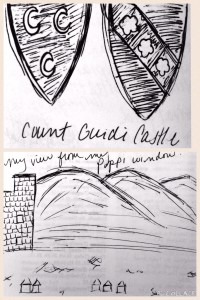 Count Guidi's Castle
my view from my
Poppi window.